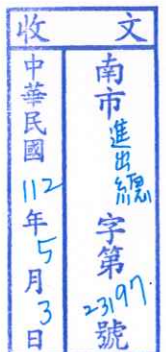 收文
南市進出總字第23197號
中華民國112年5月3日